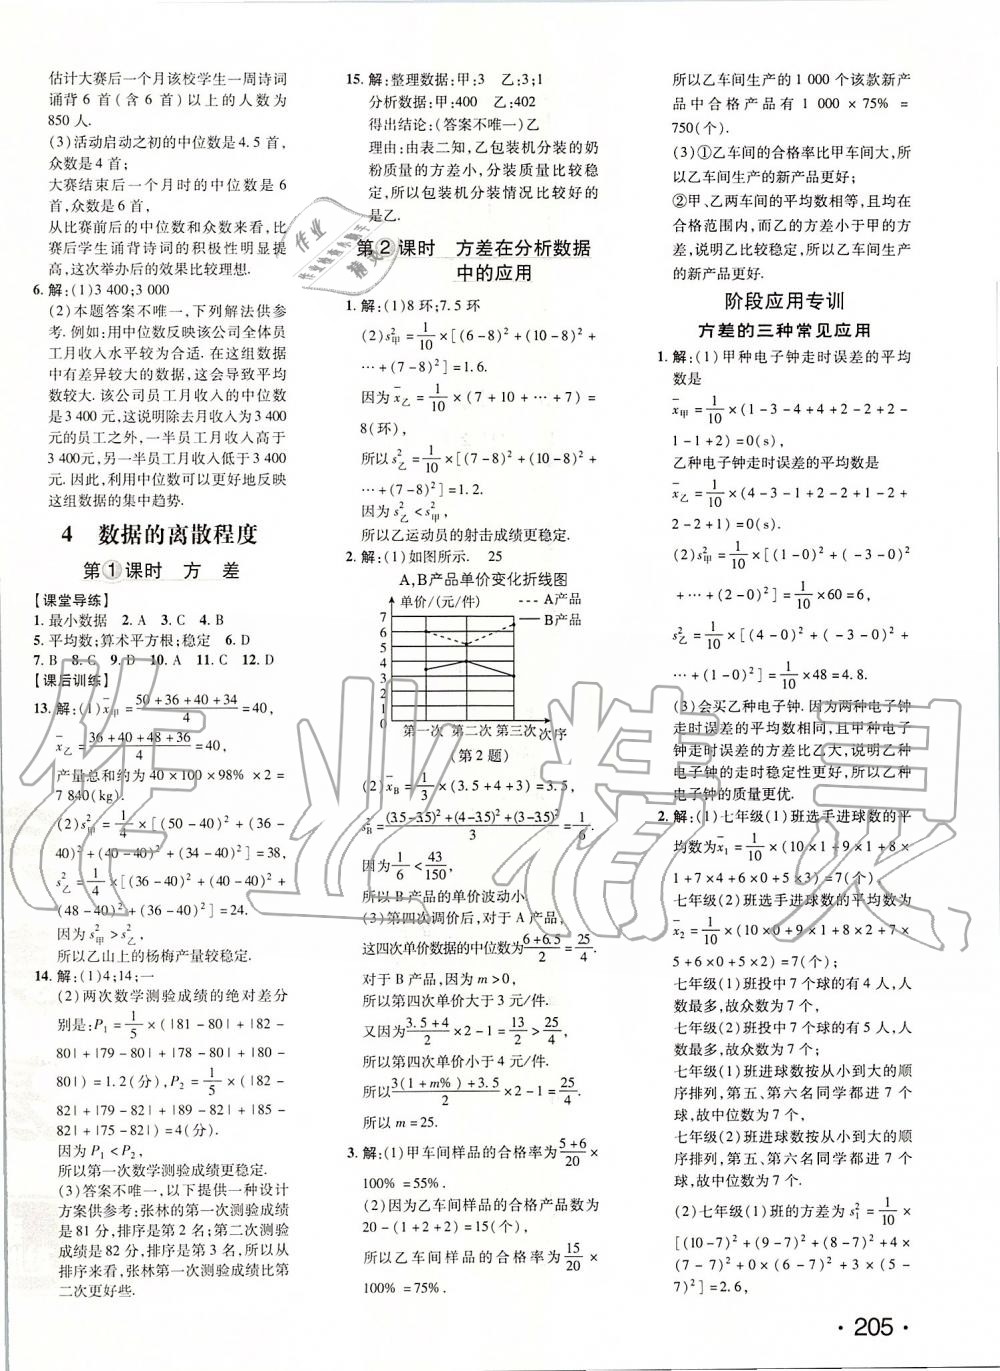 估计大赛后一个月该校学生一周诗词
诵背 6 首(含 6 首)以上的人数为
850 人.
(3)活动启动之初的中位数是4.5 首,
众数是4 首;
大赛结束后一个月时的中位数是 6
首,众数是6 首,
从比赛前后的中位数和众数来看,比
赛后学生诵背诗词的积极性明显提
高,这次举办后的效果比较理想.
6. 解:(1)3 400;3 000
(2)本题答案不唯一,下列解法供参
考. 例如:用中位数反映该公司全体员
工月收入水平较为合适. 在这组数据
中有差异较大的数据,这会导致平均
数较大. 该公司员工月收入的中位数
是 3 400 元,这说明除去月收入为 3 400
元的员工之外,一半员工月收入高于
3 400 元,另一半员工月收入低于 3 400
元. 因此,利用中位数可以更好地反映
这组数据的集中趋势.
4 数据的离散程度
第1课时 方 差
【课堂导练】
1. 最小数据 2. A 3. C 4. B
5. 平均数;算术平方根;稳定 6. D
7. B 8. C 9. D 10. A 11. C 12. D
【课后训练】
13. 解:(1)x̄甲=(50+36+40+34)/4=40,
x̄乙=(36+40+48+36)/4=40,
产量总和约为 40×100×98% ×2=
7 840(kg).
(2)s²甲=1/4×[(50-40)²+(36-
40)²+(40-40)²+(34-40)²]=38,
s²乙=1/4×[(36-40)²+(40-40)²+
(48-40)²+(36-40)²]=24.
因为 s²甲>s²乙,
所以乙山上的杨梅产量较稳定.
14. 解:(1)4;14;一
(2)两次数学测验成绩的绝对差分
别是:P₁=1/5×(|81-80|+|82-
80|+|79-80|+|78-80|+|80-
80|)=1.2(分),P₂=1/5×(|82-
82|+|79-82|+|89-82|+|85-
82|+|75-82|)=4(分).
因为 P₁<P₂,
所以第一次数学测验成绩更稳定.
(3)答案不唯一,以下提供一种设计
方案供参考:张林的第一次测验成绩
是 81 分,排序是第 2 名;第二次测验
成绩是 82 分,排序是第 3 名,所以从
排序来看,张林第一次测验成绩比第
二次更好些.
15. 解:整理数据:甲:3 乙:3;1
分析数据:甲:400 乙:402
得出结论:(答案不唯一)乙
理由:由表二知,乙包装机分装的奶
粉质量的方差小,分装质量比较稳
定,所以包装机分装情况比较好的
是乙.
第2课时 方差在分析数据
中的应用
1. 解:(1)8 环;7.5 环
(2)s²甲=1/10×[(6-8)²+(10-8)²+
…+(7-8)²]=1.6.
因为x̄乙=1/10×(7+10+…+7)=
8(环),
所以 s²乙=1/10×[(7-8)²+(10-8)²
+…+(7-8)²]=1.2.
因为 s²乙<s²甲,
所以乙运动员的射击成绩更稳定.
2. 解:(1)如图所示. 25
A,B产品单价变化折线图
单价/(元/件)
A产品
B产品
7
6
5
4
3
2
1
0
第一次 第二次 第三次 次序
(第 2 题)
(2)x̄B=1/3×(3.5+4+3)=3.5,
s²B=((3.5-3.5)²+(4-3.5)²+(3-3.5)²)/3=1/6.
因为1/6<43/150,
所以 B 产品的单价波动小.
(3)第四次调价后,对于 A 产品,
这四次单价数据的中位数为(6+6.5)/2=25/4;
对于 B 产品,因为 m>0,
所以第四次单价大于 3 元/件.
又因为(3.5+4)/2×2-1=13/2>25/4,
所以第四次单价小于 4 元/件.
所以(3(1+m%)+3.5)/2×2-1=25/4,
所以 m=25.
3. 解:(1)甲车间样品的合格率为(5+6)/20×
100%=55%.
(2)因为乙车间样品的合格产品数为
20-(1+2+2)=15(个),
所以乙车间样品的合格率为15/20×
100%=75%.
所以乙车间生产的 1 000 个该款新产
品中合格产品有 1 000 ×75% =
750(个).
(3)①乙车间的合格率比甲车间大,所
以乙车间生产的新产品更好;
②甲、乙两车间的平均数相等,且均在
合格范围内,而乙的方差小于甲的方
差,说明乙比较稳定,所以乙车间生产
的新产品更好.
阶段应用专训
方差的三种常见应用
1. 解:(1)甲种电子钟走时误差的平均
数是
x̄甲=1/10×(1-3-4+4+2-2+2-
1-1+2)=0(s),
乙种电子钟走时误差的平均数是
x̄乙=1/10×(4-3-1+2-2+1-2+
2-2+1)=0(s).
(2)s²甲=1/10×[(1-0)²+(-3-0)²
+…+(2-0)²]=1/10×60=6,
s²乙=1/10×[(4-0)²+(-3-0)²+
…+(1-0)²]=1/10×48=4.8.
(3)会买乙种电子钟. 因为两种电子钟
走时误差的平均数相同,且甲种电子
钟走时误差的方差比乙大,说明乙种
电子钟的走时稳定性更好,所以乙种
电子钟的质量更优.
2. 解:(1)七年级(1)班选手进球数的平
均数为x̄₁=1/10×(10×1+9×1+8×
1+7×4+6×0+5×3)=7(个),
七年级(2)班选手进球数的平均数为
x̄₂=1/10×(10×0+9×1+8×2+7×
5+6×0+5×2)=7(个);
七年级(1)班投中 7 个球的有 4 人,人
数最多,故众数为 7 个,
七年级(2)班投中 7 个球的有 5 人,人
数最多,故众数为 7 个;
七年级(1)班进球数按从小到大的顺
序排列,第五、第六名同学都进 7 个
球,故中位数为 7 个,
七年级(2)班进球数按从小到大的顺
序排列,第五、第六名同学都进 7 个
球,故中位数为 7 个.
(2)七年级(1)班的方差为 s²₁=1/10×
[(10-7)²+(9-7)²+(8-7)²+4×(7
-7)²+0×(6-7)²+3×(5-
7)²]=2.6,
· 205 ·
作业精灵